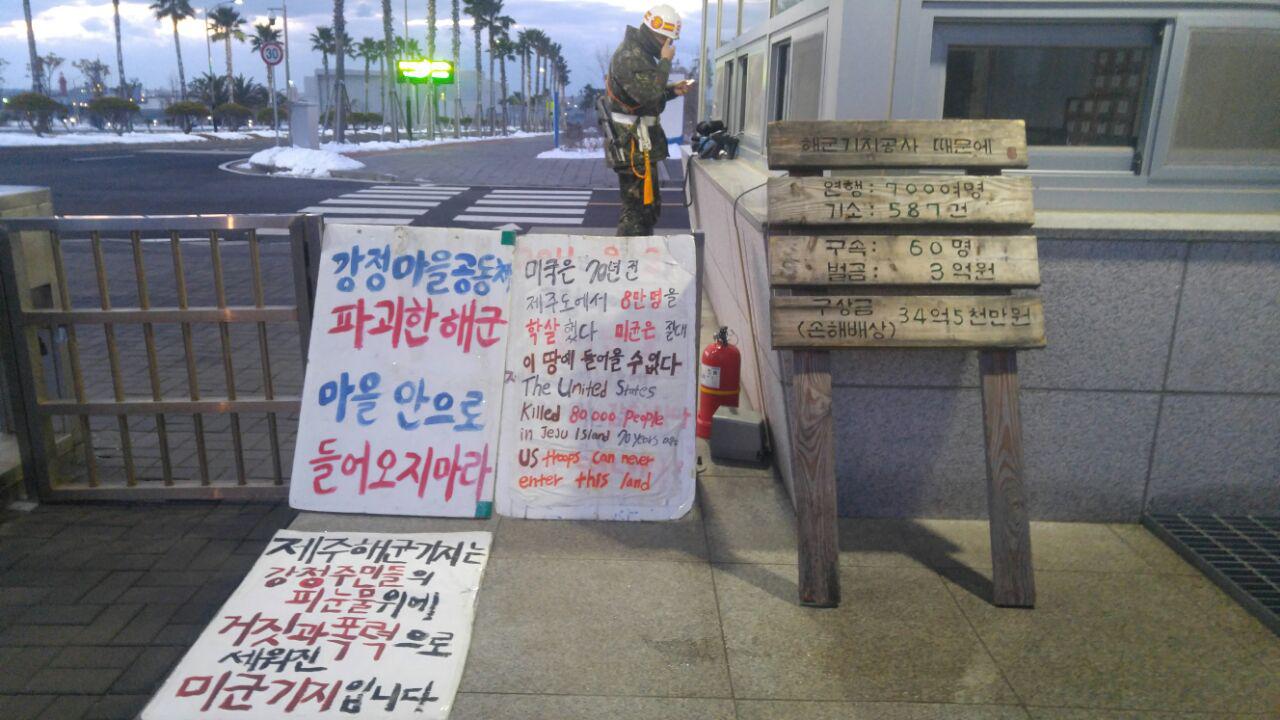 30
강정마을공동체
파괴한해군
마을 안으로
들어오지마라
미국은 70년 전
제주도에서 8만명을
학살했다 미군은 절대
이 땅에 들어올 수 없다
The United States
Killed 80,000 People
in Jeju Island 70 years ago
US troops can never
enter this land
제주해군기지는
강정주민들의
피눈물위에
거짓과폭력으로
세워진
미군기지입니다
해군기지공사 때문에
연행: 700여명
기소: 587건
구속: 60명
벌금: 3억원
구상금 34억5천만원
(손해배상)